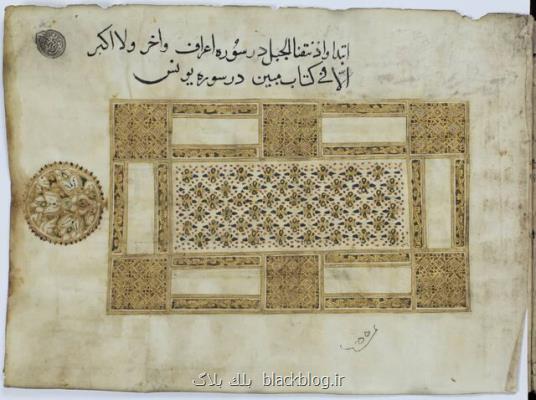 ابتدا واذ نتقنا الجبل در سوره اعراف واخر ولا اکبر
الا فی کتاب مبین در سوره یونس
بلك بلاگ blackblog.ir